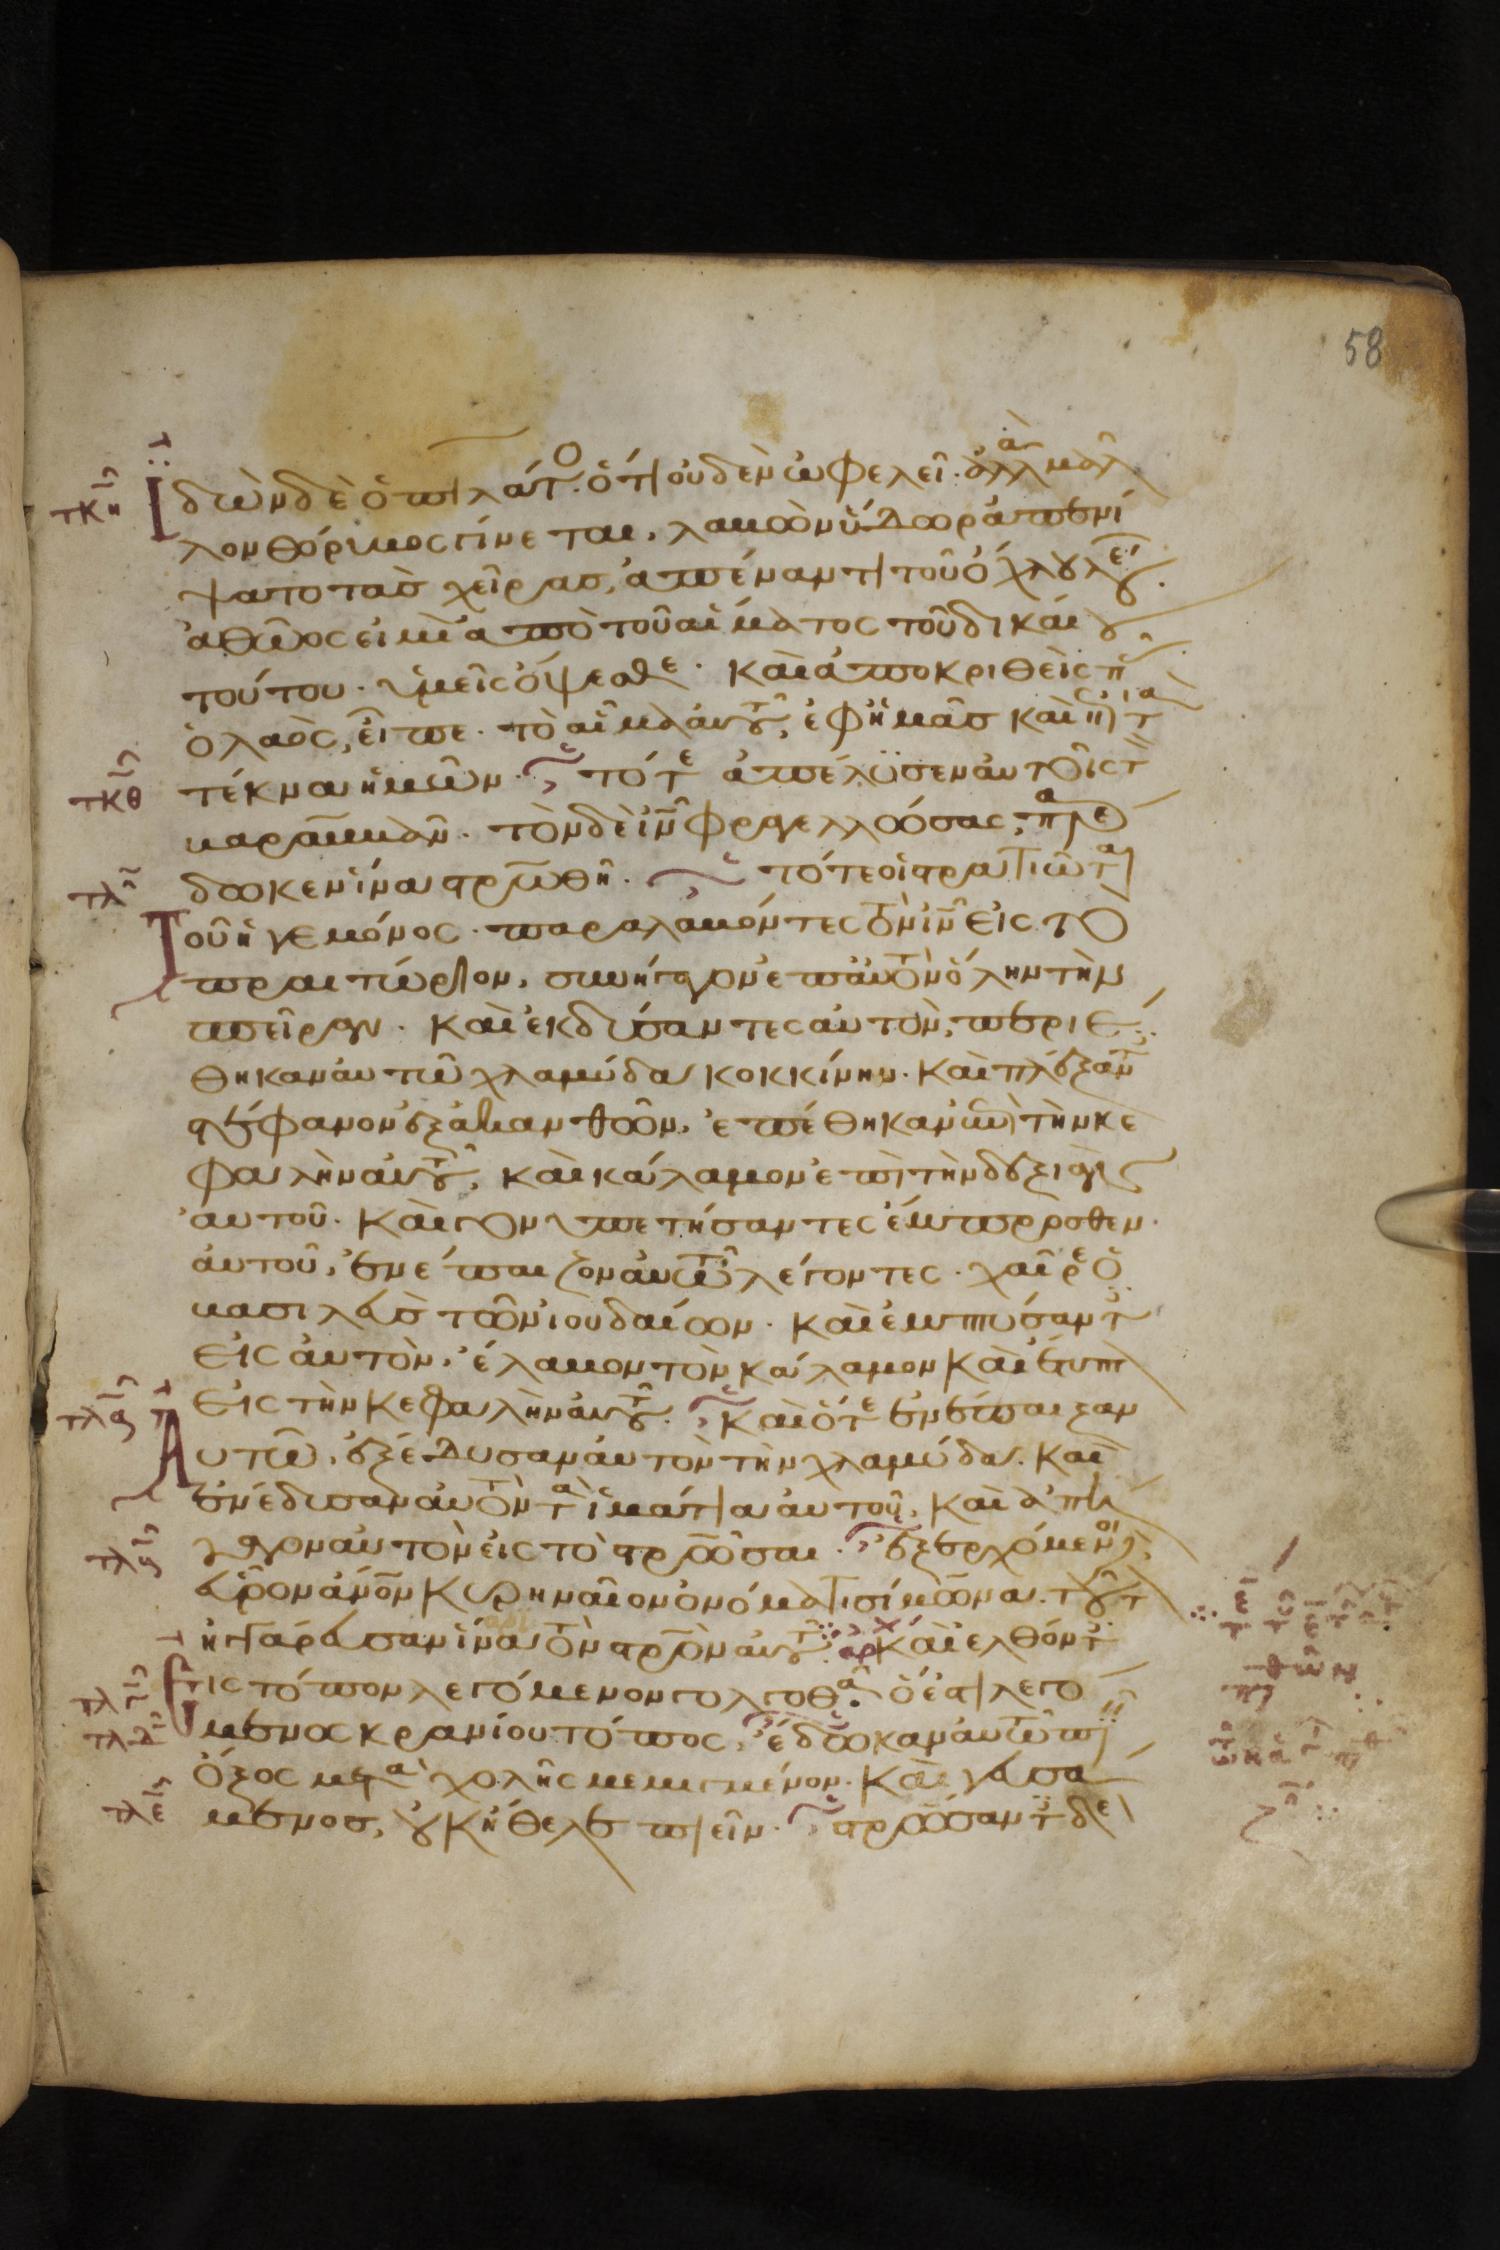 58
ἰδὼν δὲ ὁ πιλάτο ὅτι οὐδὲν ὠφελεῖ· ἀλλὰ μᾶλ
λον θόρυβος γίνεται, λαβὼν ὕδωρ ἀπενί
ψατο τὰς χεῖρας, ἀπέναντι τοῦ ὄχλου λέγ
ἀθῶος εἰμὶ ἀπὸ τοῦ αἵματος τοῦ δικαίου
τούτου· ὑμεῖς ὄψεσθε· καὶ ἀποκριθεὶς π
ὁ λαὸς, εἶπε· τὸ αἷμα αὐτοῦ, ἐφ ἡμᾶς καὶ ἐπὶ τὰ
τκη
τέκνα ἡμῶν· τότε ἀπέλυσεν αὐτοῖς τ
τκθ
βαραββᾶν· τὸν δὲ ἰν φραγελλώσας, παρέ
δωκεν ἵνα στρωθῆ· τότε οἱ στρατιῶται
τλ
τοῦ ἡγεμόνος· παραλαβόντες τὸν ἰν εἰς τὸ
πραιτώριον, συνήγαγον ἐπ αὐτὸν ὅλην τὴν
σπεῖραν· καὶ ἐκδύσαντες αὐτὸν, περιέ
θηκαν αὐτῶ χλαμύδα κοκκίνην· καὶ πλέξαντ
στέφανον ἐξ ἀκανθῶν, ἐπέθηκαν ἐπὶ τὴν κε
φαλὴν αὐτοῦ, καὶ κάλαμον ἐπὶ τὴν δεξιὰν
αὐτοῦ· καὶ γονυπετήσαντες ἔμπροσθεν
αὐτοῦ, ἐνέπαιζον αὐτῶ λέγοντες· χαῖρε ὁ
βασιλεὺς τῶν ἰουδαίων· καὶ ἐμπτύσαντ
εἰς αὐτὸν, ἔλαβον τὸν κάλαμον καὶ ἔτυπτ
εἰς τὴν κεφαλὴν αὐτοῦ· καὶ ὅτε ἐνέπαιξαν
τλα
αὐτῶ, ἐξέδυσαν αὐτὸν τὴν χλαμύδα· καὶ
ἐνέδυσαν αὐτὸν τὰ ἱμάτια αὐτοῦ, καὶ ἀπή
γαγον αὐτὸν εἰς τὸ στρῶσαι· ἐξερχόμενοι
τλβ
εὗρον ἄνον κυρηναῖον ὀνόματι σίμωνα· τοῦτ
ἠγγάρευσαν ἵνα τὸν στρον αὐτοῦ· ἀρ καὶ ἐλθόντ
εἰς τόπον λεγόμενον γολγοθᾶ· ὅ ἐστι λεγό
τλγ
μενος κρανίου τόπος, ἔδωκαν αὐτῶ πι
τλδ
ὄξος μετὰ χολῆς μεμιγμένον· καὶ γευσά
μενος, οὐκ ἤθελε πιεῖν· στρώσαντ δὲ
τλε